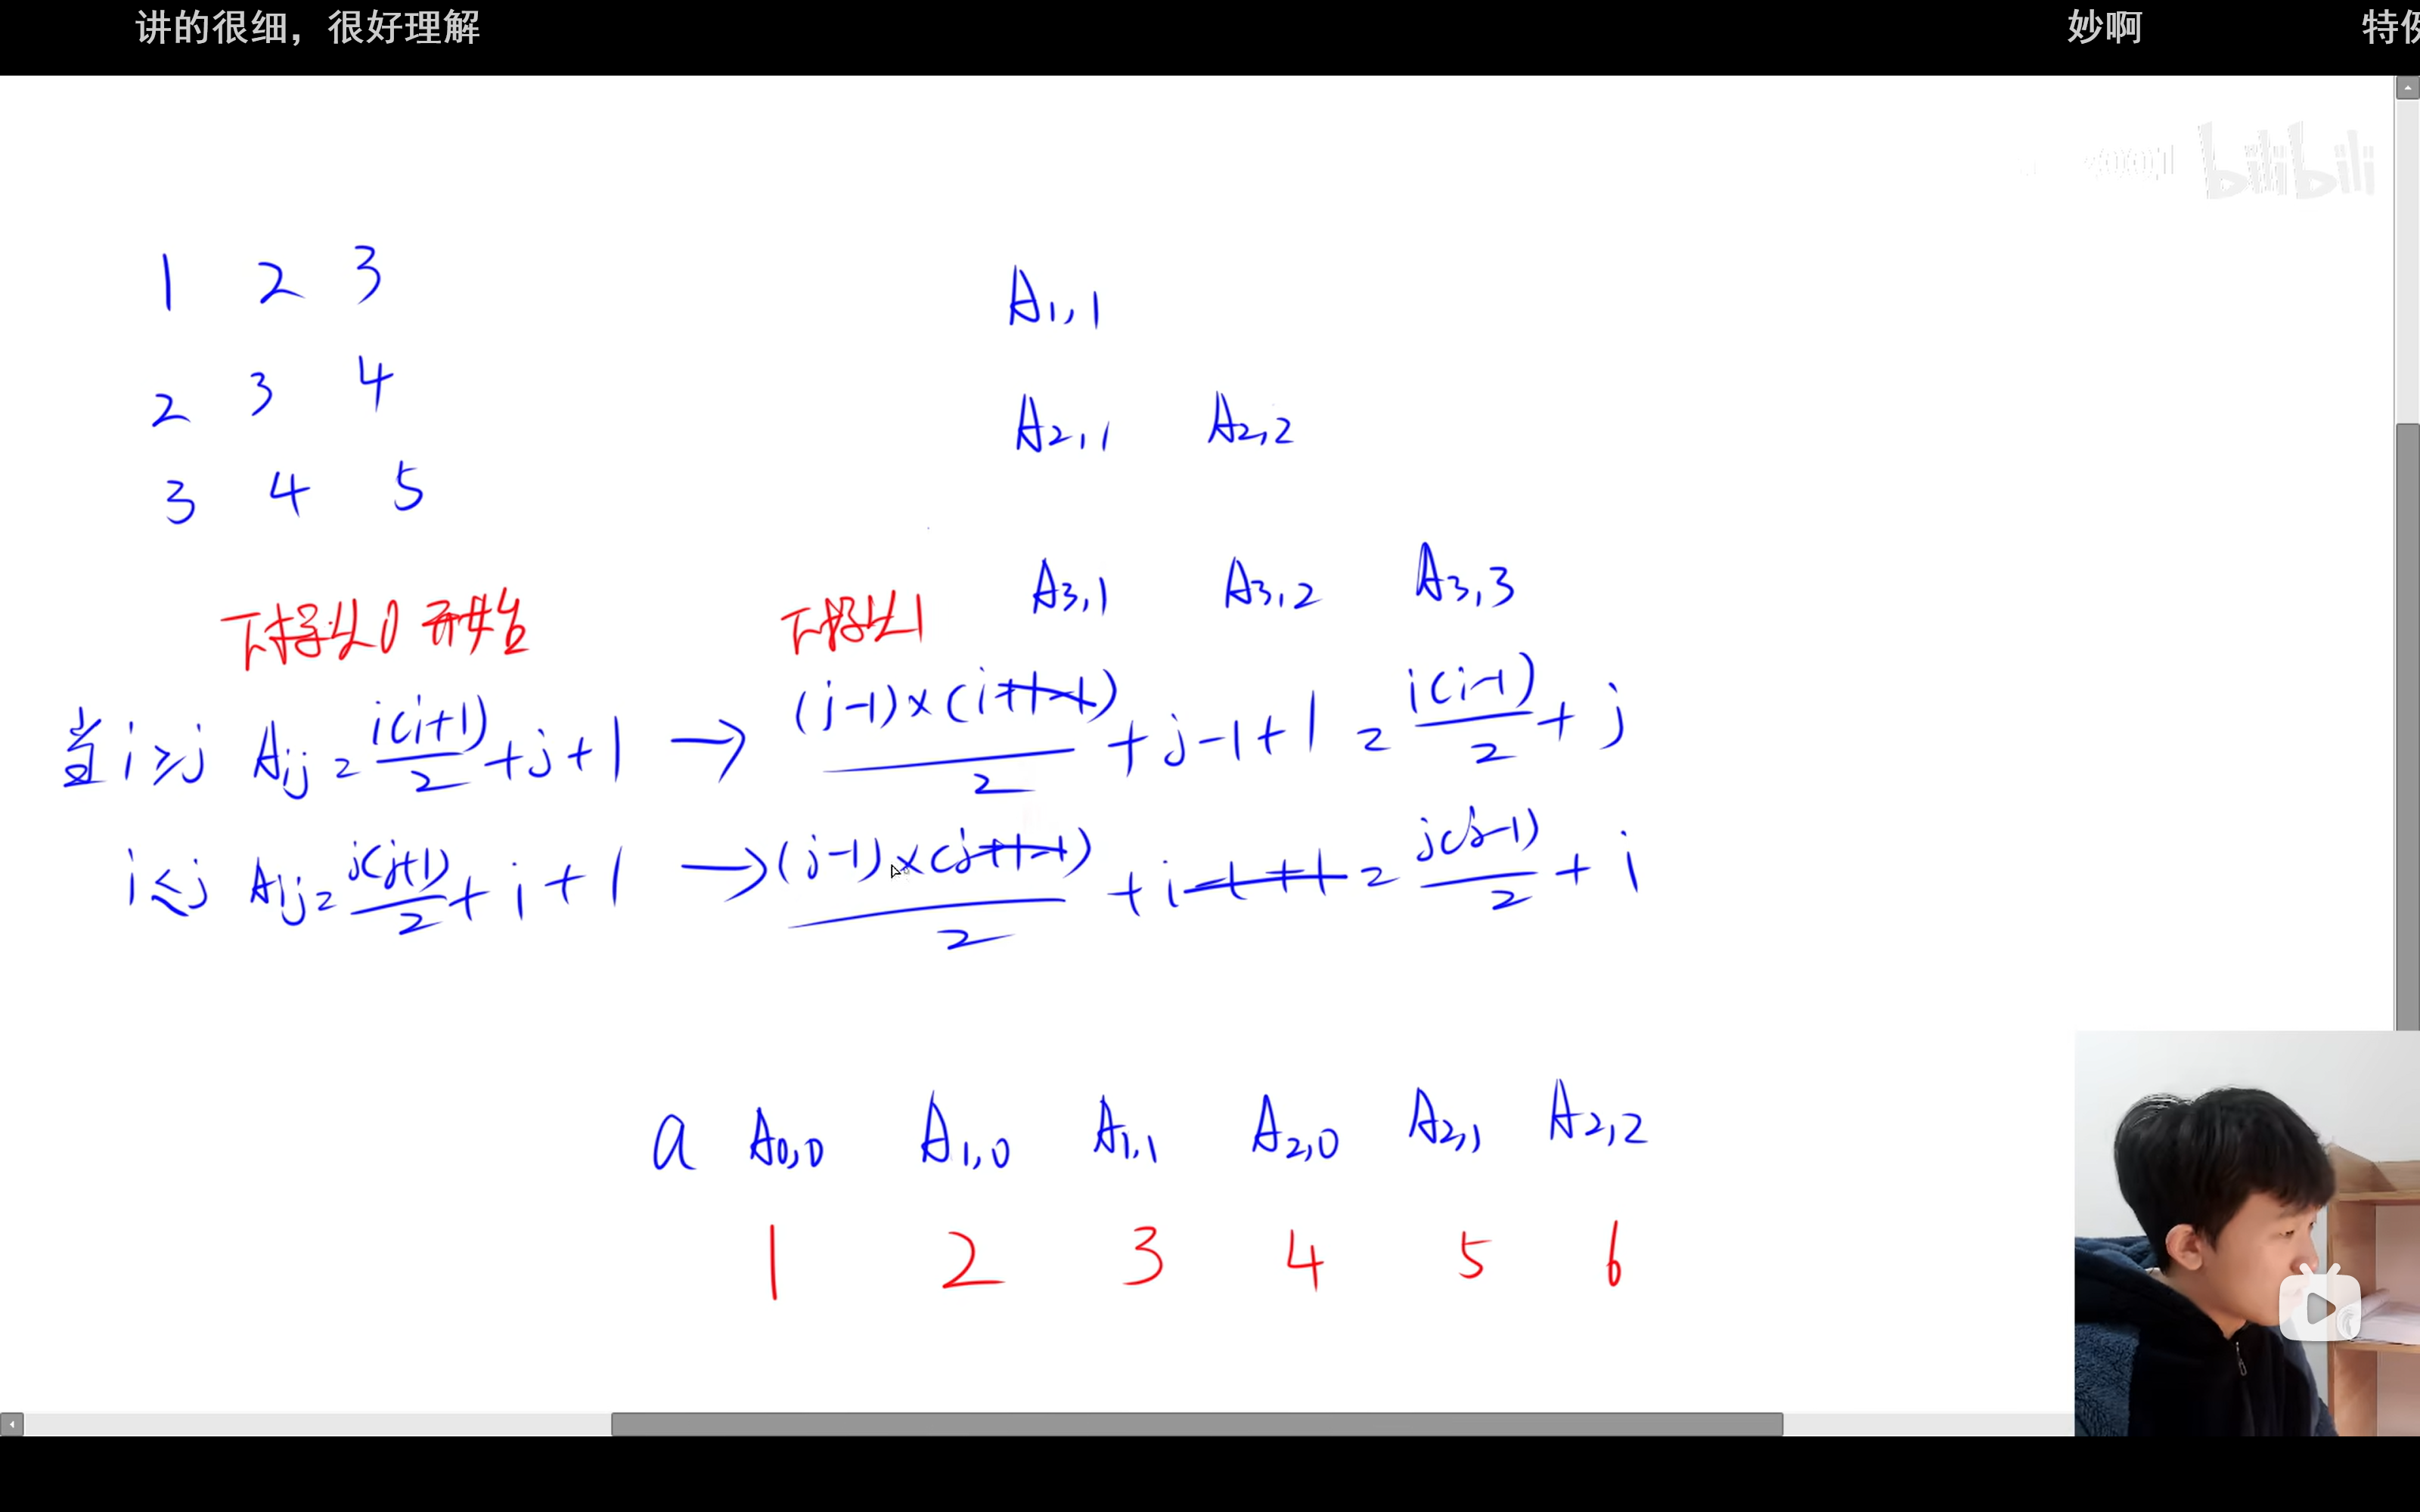 讲的很细，很好理解 妙啊
bilibili
1 2 3
2 3 4
3 4 5
A1,1
A2,1 A2,2
A3,1 A3,2 A3,3
下标从0开始 下标从1
当 i≥j Aij = i(i+1)/2 + j + 1 → (j-1)×(i+1-1)/2 + j-1+1 = i(i-1)/2 + j
i≤j Aij = j(j+1)/2 + i + 1 → (j-1)×(j+1-1)/2 + i-1+1 = j(j-1)/2 + i
a A0,0 A1,0 A1,1 A2,0 A2,1 A2,2
1 2 3 4 5 6